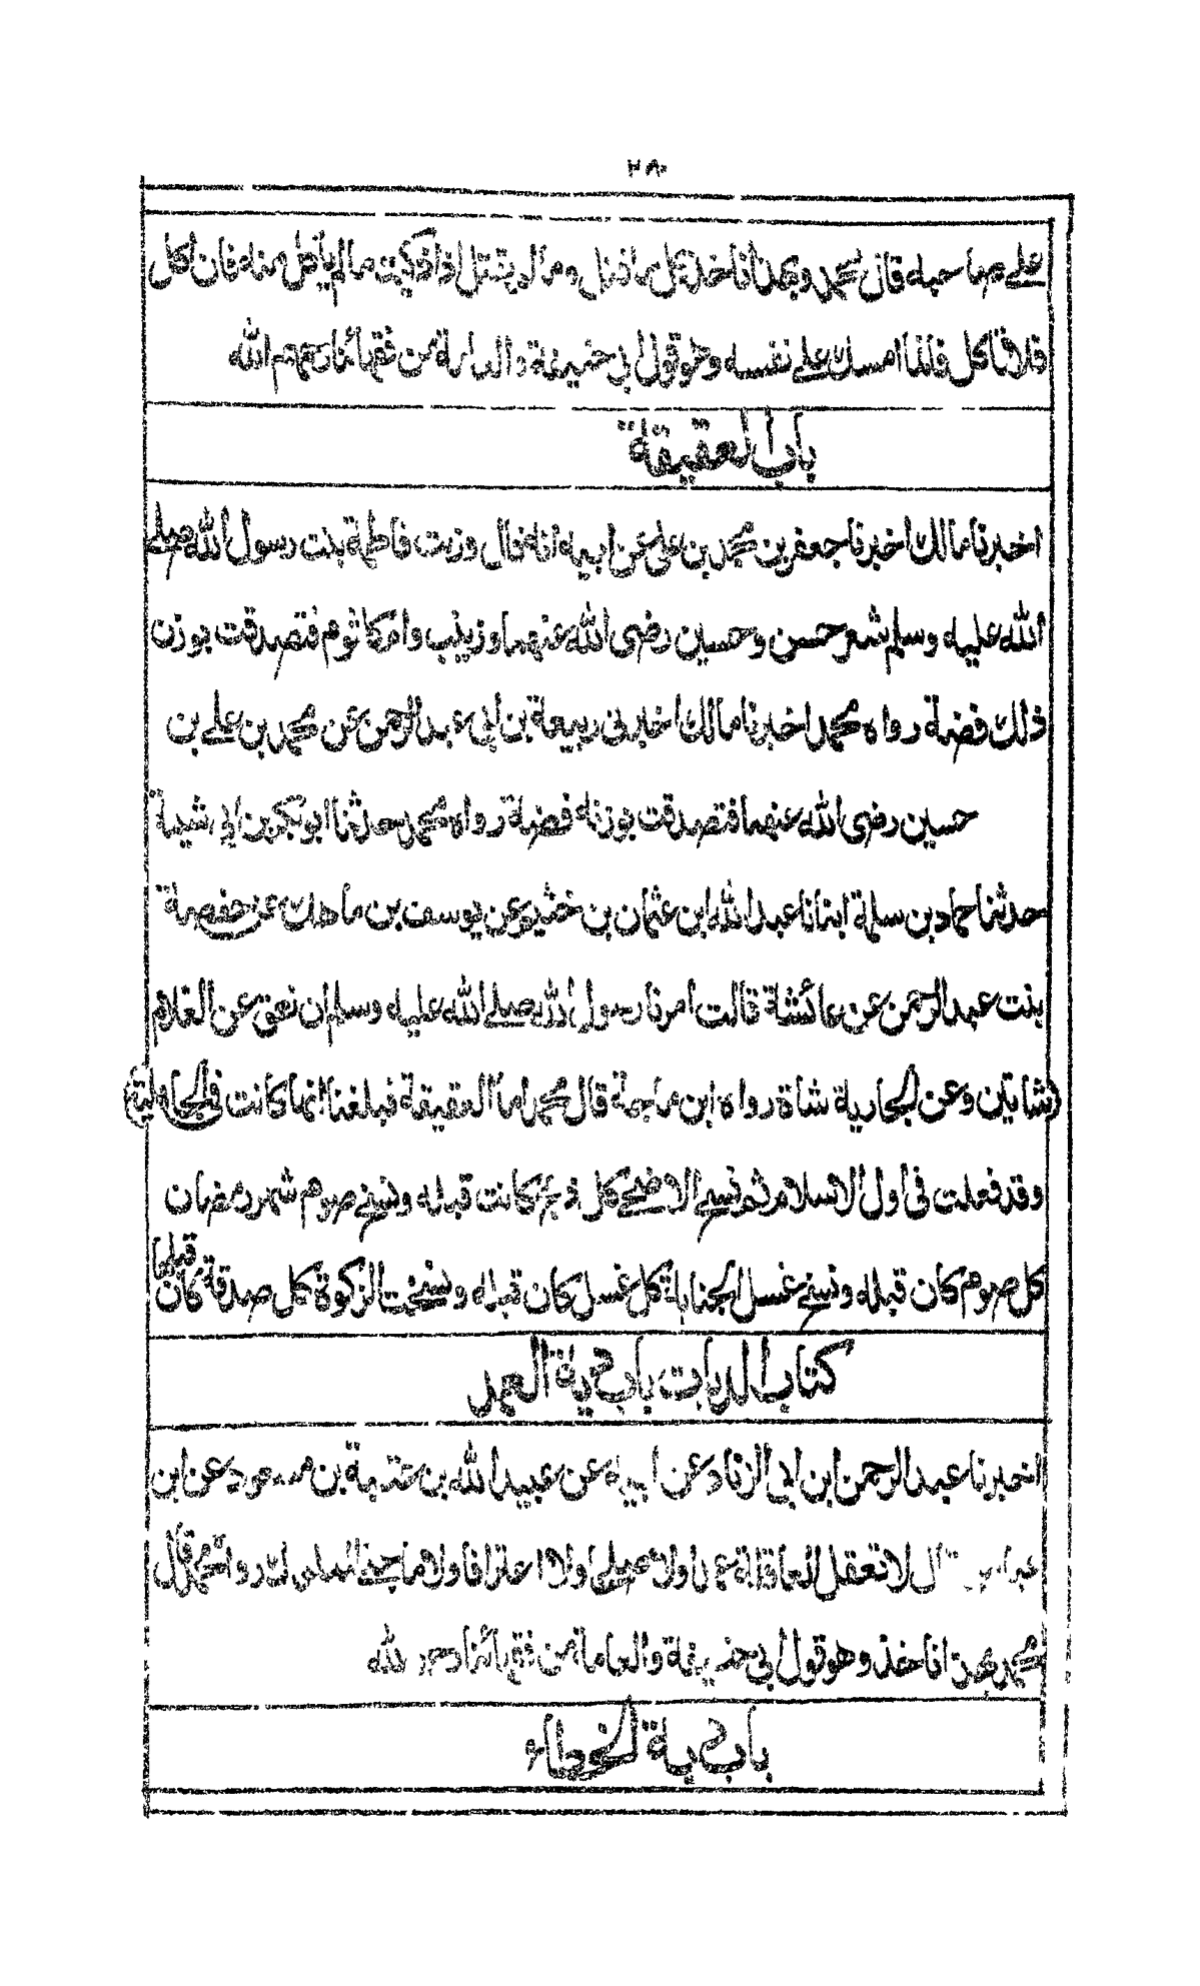 ٢٨٠
على صاحبه قال محمد وبهذا ناخذ كل ما قتل او ذكيت ما لم يأكل منه فان اكل
فلا تاكل فانما امسك على نفسه وهو قول ابي حنيفة والعامة من فقهائنا رحمهم الله
باب العقيقة
اخبرنا مالك اخبرنا جعفر بن محمد بن على عن ابيه انه قال وزنت فاطمة بنت رسول الله صلى
الله عليه وسلم شعر حسن وحسين رضى الله عنهما وزينب وام كلثوم فتصدقت بوزن
ذلك فضة رواه محمد اخبرنا مالك اخبرنى ربيعة بن ابى عبد الرحمن عن محمد بن على بن
حسين رضى الله عنهما فتصدقت بوزنه فضة رواه محمد حدثنا ابو بكر بن ابى شيبة
حدثنا حماد بن سلمة ابنانا عبد الله ابن عثمان بن خثيم عن يوسف بن ماهك عن حفصة
بنت عبد الرحمن عن عائشة قالت امرنا رسول الله صلى الله عليه وسلم ان نعق عن الغلام
شاتين وعن الجارية شاة رواه ابن ماجة قال محمد اما العقيقة فبلغنا انها كانت فى الجاهلية
وقد فعلت فى اول الاسلام ثم نسخ الاضحى كل ذبح كانت قبله ونسخ صوم شهر رمضان
كل صوم كان قبله ونسخ غسل الجنابة كل غسل كان قبله ونسخت الزكوة كل صدقة كان قبلها
كتاب الديات باب دية العمد
اخبرنا عبد الرحمن ابن ابى الزناد عن ابيه عن عبيد الله بن عتبة بن مسعود عن ابن
عباس قال لا تعقل العاقلة عمدا ولا صلحا ولا اعترافا ولا ما جنى المملوك رواه محمد قال
محمد بهذا ناخذ وهو قول ابى حنيفة والعامة من فقهائنا رحمهم الله
باب دية الخطاء